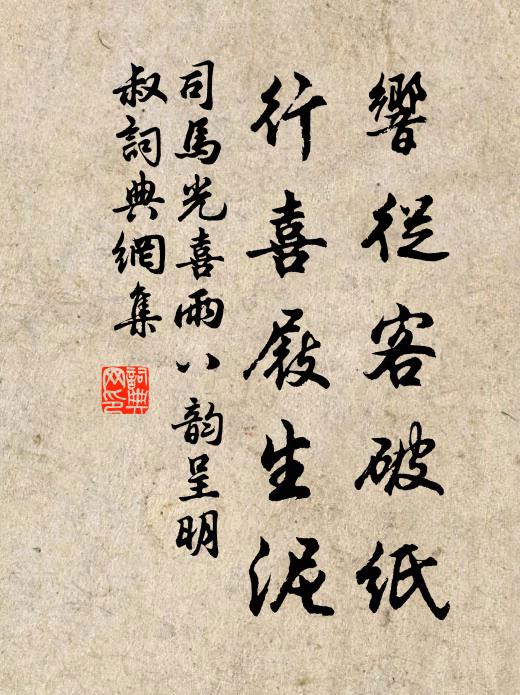 響從客破紙
行喜屐生泥
司馬光喜雨八韵呈明
叔詞典網集
詞典
网印